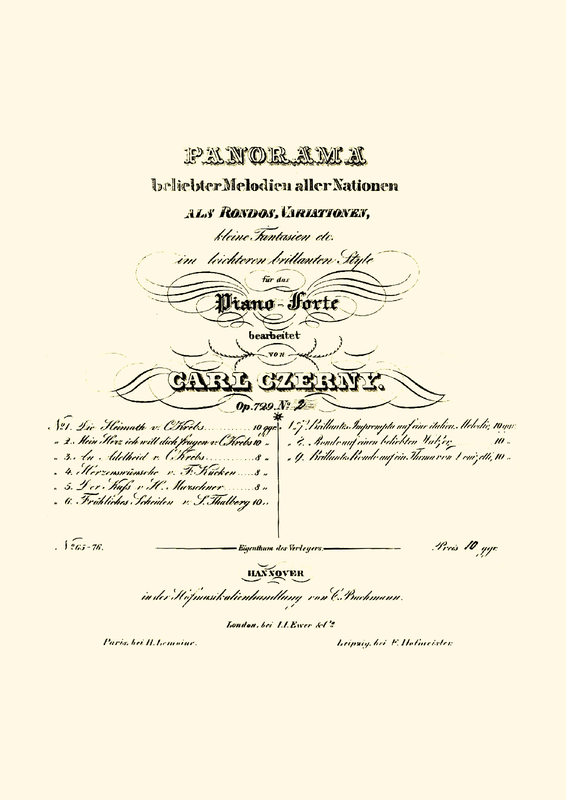 PANORAMA
beliebter Melodien aller Nationen
ALS RONDOS, VARIATIONEN,
kleine Fantasien etc.
im leichteren brillanten Style
für das
Piano-Forte
bearbeitet
von
CARL CZERNY.
Op. 729. No. 2
No. 1. Die Heimath v. C. Krebs 10 ggr.
" 2. Mein Herz ich will dich fragen v. C. Krebs 10 "
" 3. An Adelheid v. C. Krebs 8 "
" 4. Herzenswünsche v. F. Kücken 8 "
" 5. Der Kuß v. H. Marschner 8 "
" 6. Fröhliches Scheiden v. S. Thalberg 10 "
7. Brillantes Impromptu auf eine italien. Melodie, 10 ggr.
Rondo auf einen beliebten Walzer 10 "
" 9. Brillantes Rondo auf ein Thema von Donizetti, 10 "
No. 65-76.
Eigenthum des Verlegers.
Preis 10 ggr.
HANNOVER
in der Hofmusikalienhandlung von C. Bachmann.
London, bei J.J. Ewer & Co.
Paris, bei H. Lemoine.
Leipzig, bei F. Hofmeister.